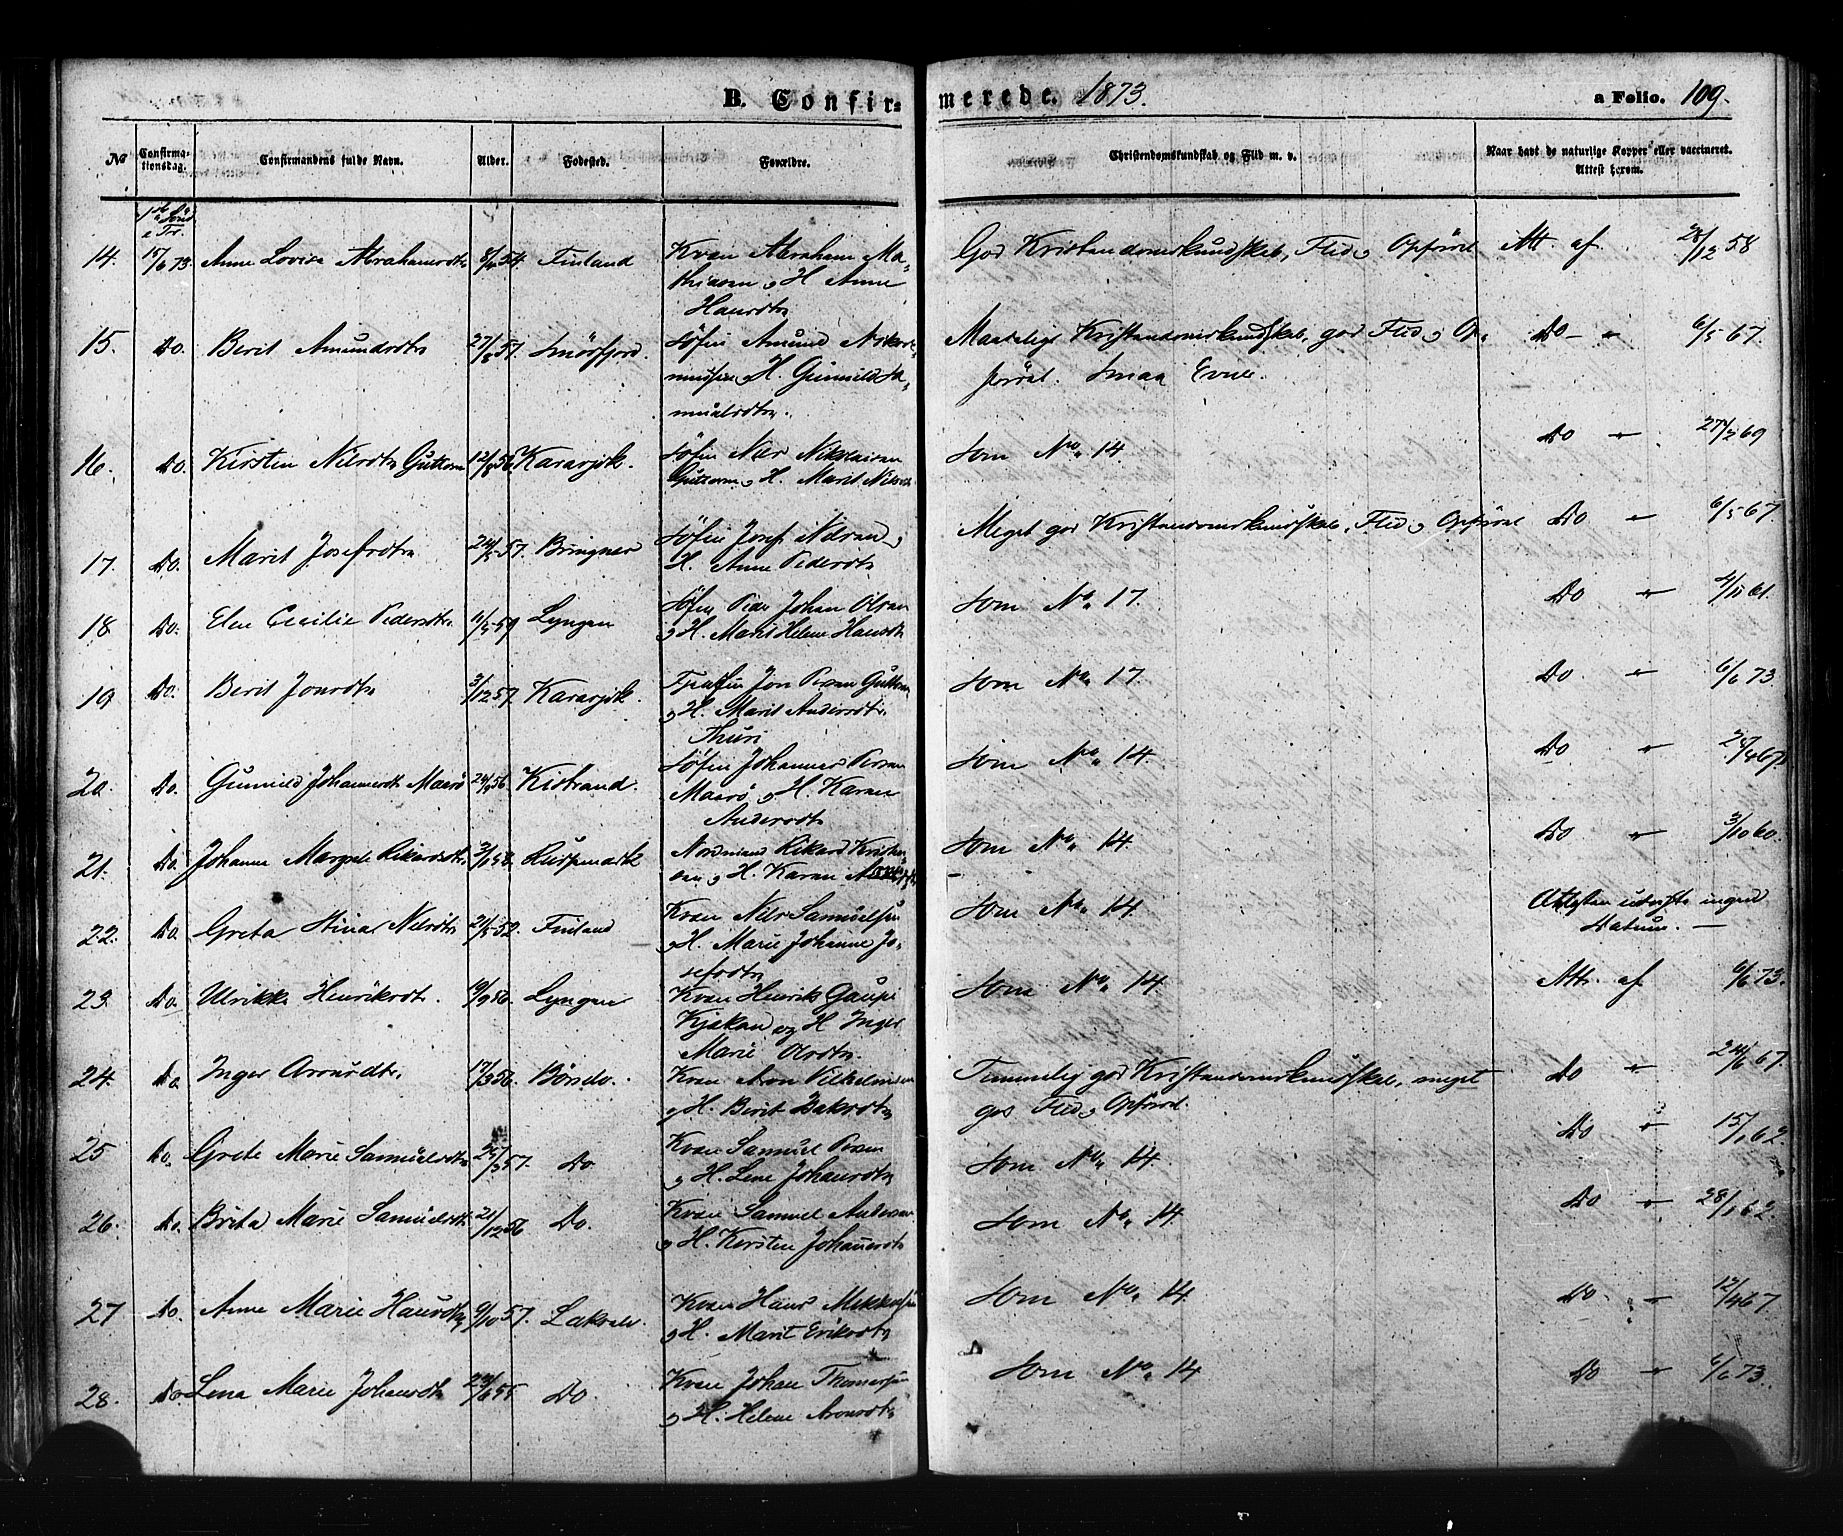 B. Confir=
merede. 1873.
a Folio. 109.
No
Confirma=
tionsdag.
Confirmandens fulde Navn.
Alder.
Fodested.
Forældre.
Christendomskundskab og Flid m. v.
Naar havt de naturlige Kopper eller vaccineret.
Attest herom.
14. 15/6 73. Anne Lovise Abrahamsdtr 54. Finland Kvæn Abraham Ma=
thisen og H. Anne
Hansdtr
God Kristendomskundskab, Flid og Opførsel Att. af 28/12 58
15. Do. Berit Amundsdtr 27/8 57. Smørfjord. Søfin Amund
H. Gunnild Sa=
muelsdtr.
Maadelig Kristendomskundskab, god Flid og Op=
førsel. Smaa Evner. Do - " 6/5 67.
16. Do. Kirsten Nilsdtr Guttorm 12/8 56 Karasjok. Søfin Nils Nikolaisen
Guttorm og H. Marit Nilsdtr
Som No. 14. Do " 27/7 69
17. Do. Marit Josefsdtr 24/5 57. Bringnes Søfin Josef Nilsen og
H. Anne Pedersdtr
Meget god Kristendomskundskab, Flid og Opførsel Do " 6/5 67.
18 Do. Elen Cecilie Pedersdtr. 11/5 59 Lyngen Søfin Peder Johan Olsen
og H. Marit Helene Hansdtr
Som No. 17. Do " 4/11 61.
19 Do. Berit Jonsdtr 3/12 57. Karasjok. Fjeldfin Jon Persen Guttorm
og H. Marit Andersdtr.
Thuri
Som No. 17 Do " 6/6 73
20. Do. Gunnild Johannesdtr Maasø 24/9 56. Kistrand. Søfin Johannes Persen
Maasø og H. Karen
Andersdtr
Som No. 14. Do " 24/4 67.
21. Do. Johanne Margrete Rikardsdtr. 3/1 58. Normand Rikard Kristen=
sen og H. Karen
Som No. 14. Do " 3/10 60.
22. Do. Greta Stina Nilsdtr 21/5 52. Finland Kvæn Nils Samuelsen
og H. Marie Johanne Jo=
sefsdtr
Som No. 14. Attesten udvister ingen
Datum. —
23. Do. Ulrikke Henriksdtr. 10/9 56. Lyngen Kvæn Henrik Gaupi
Kjækan og H Inger
Marie Olsdtr.
Som No. 14. Att. af 6/6 73.
24. Do. Inger Aronsdtr. 17/3 56. Børselv. Kvæn Aron Vilhelmsen
og H. Berit Isaksdtr
Temmelig god Kristendomskundskab, meget
god Flid og Opførsel. Do " 24/6 67.
25 Do. Grete Marie Samuelsdtr 25/3 57. Do Kvæn Samuel Persen
og H. Lene Johansdtr
Som No. 14. Do " 15/1 62.
26. Do. Brita Marie Samuelsdtr 21/12 56 Do. Kvæn Samuel Andersen
og H. Kirsten Johansdtr
Som No. 14. Do " 28/1 62.
27 Do. Anne Marie Hansdtr 9/10 57. Lakselv. Kvæn Hans Mikkelsen
og H. Marit Eriksdtr
Som No. 14 Do. " 12/4 67.
28. Do Lena Marie Johansdtr 24/6 55 Do. Kvæn Johan Thomassen
og H. Helene Aronsdtr
Som No. 14 Do " 6/6 73.